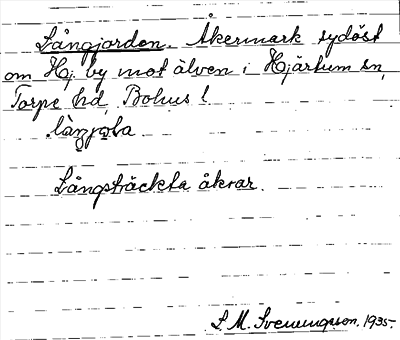 Långjorden. Åkermark sydöst
om Hj. by mot älven i Hjärtum sn,
Torpe hd, Bohus l.
Långsträckta åkrar.
S. M. Svenungsson. 1935.